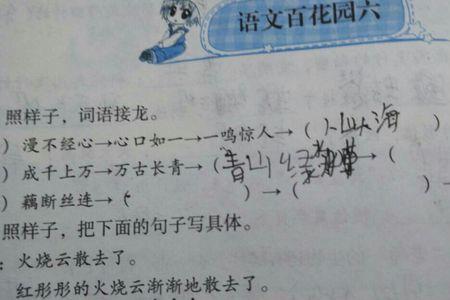 语文百花园六
照样子，词语接龙。
）漫不经心→心口如一→一鸣惊人→（人山人海
）成千上万→万古长青→（青山绿）→（
）藕断丝连→（ ）→（ ）
照样子，把下面的句子写具体。
：火烧云散去了。
红彤彤的火烧云渐渐地散去了。